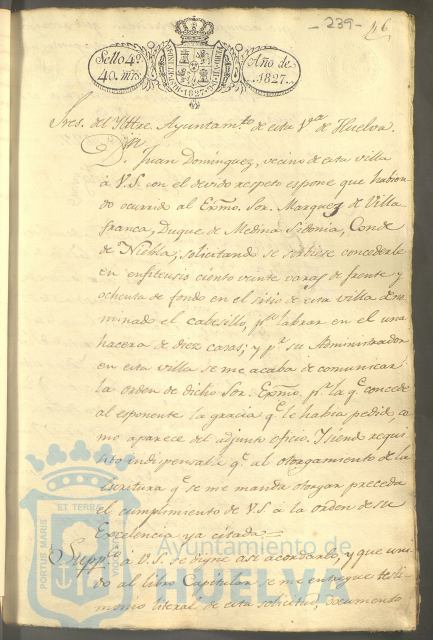 -239-
46
Sello 4º
40. mrs.
Año de
1827.
Sres. del Ylltre. Ayuntamto. de esta Va. de Huelva.
Dn. Juan Domínguez, vecino de esta villa
á V.S. con el devido respeto espone que habien-
do ocurrido al Exmo. Sor. Marquez de Villa
franca, Duque de Medina Sidonia, Conde
de Niebla; solicitando se sirbiese concederle
en enfiteucis ciento veinte varas de frente y
ochenta de fondo en el sitio de esta villa deno
minado el cabesillo, pa. labrar en el una
hacera de diez casas; y pr. su Administrador
en esta villa se me acaba de comunicar
la orden de dicho Sor. Exmo. pr. la qe. concede
al esponente la gracia qe. le había pedido, co
mo aparece del adjunto oficio. Y siendo requi
sito indispensable qe. al otorgamiento de la
escritura qe. se me manda otorgar preceda
el cumplimiento de V.S. á la orden de su
Excelencia ya citada =
Suppco. á V.S. se digne asi acordarlo, y que uni-
do al libro Capitular se me entregue testi
monio literal de esta solicitud, documento
PORTUS MARIS ET TERRAE CUSTODIA
Ayuntamiento de
HUELVA